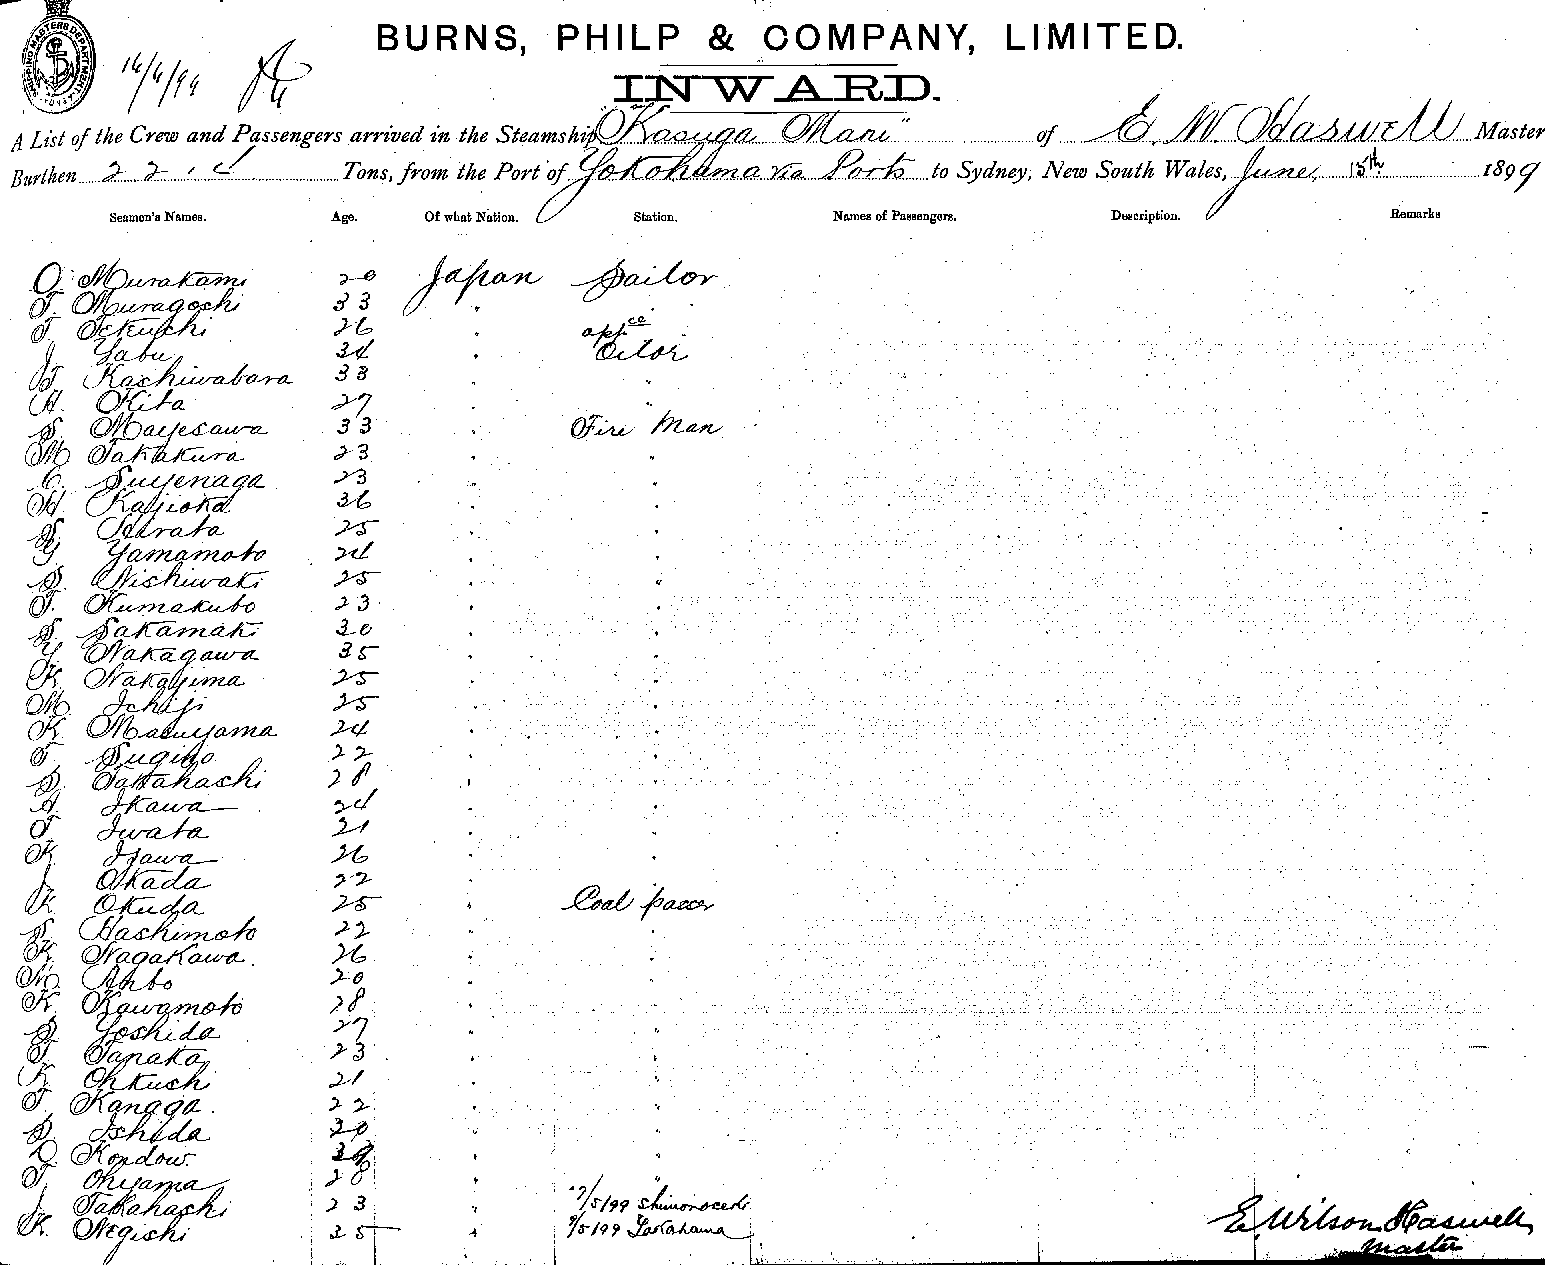 SHIPPING MASTERS DEPARTMENT
BURNS, PHILP & COMPANY, LIMITED.
INWARD.
A List of the Crew and Passengers arrived in the Steamship "Kasuga Maru" of E. W. Haswell Master
Burthen Tons, from the Port of Yokohama via Ports to Sydney, New South Wales, June, 15th. 1899
Seamen's Names. Age. Of what Nation. Station. Names of Passengers. Description. Remarks
O. Murakami 20 Japan Sailor
T. Muragochi 33 "
T. 26 " appce
J. Yabu 34 " Oilor
T. Kashiwabara 33 " "
H. Kita 27 " "
S. Mayesawa 33 " Fire Man
M. Takakura 23 " "
Suyenaga 23 " "
H. Kajioka 36 " "
S. Hirata 25 " "
Y. Yamamoto 24 " "
S. Nishiwaki 25 " "
T. Kumakubo 23 " "
S. Sakamaki 30 " "
Y. Nakagawa 35 " "
K. Nakajima 25 " "
M. Ichiji 25 " "
K. Masuyama 24 " "
T. Sugino 22 " "
S. Takahashi 28 " "
Ikawa 24 " "
T. Iwata 21 " "
K. 26 " "
J. Okada 22 "
K. Okuda 25 " Coal passer
S. Hashimoto 22 " "
K. Nagakawa 26 " "
M. Anbo 20 " "
K. Kawamoto 28 " "
S. Yoshida 27 " "
T. Tanaka 23 " "
K. Ohkuchi 21 " "
T. Kanaga 22 " "
S. Ishida " "
Kondow " "
T. Ohyama 28 " "
J. Takahashi 23 " /5/99 Shimonoseki
K. Negishi 35 " 9/5/99 Yokohama
E. Wilson Haswell
Master